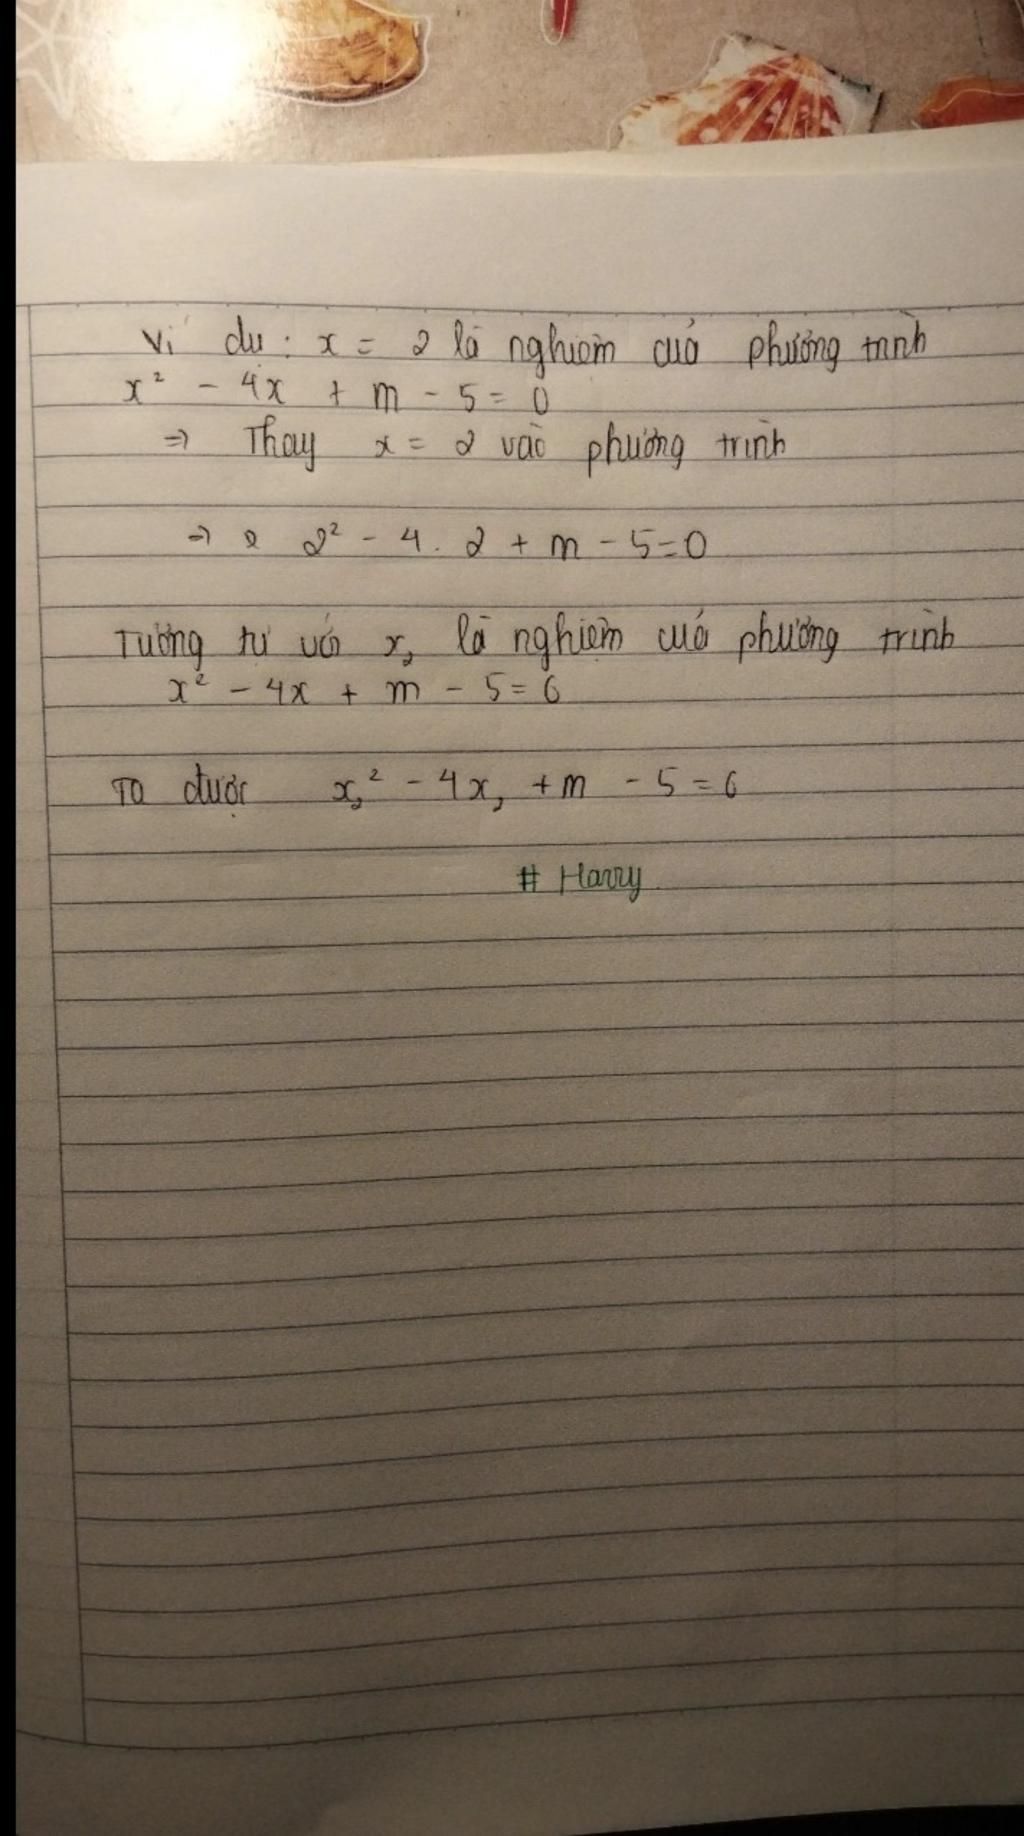 Ví dụ: x = 2 là nghiệm của phương trình
x² - 4x + m - 5 = 0
⇒ Thay x = 2 vào phương trình
⇒ 2² - 4 . 2 + m - 5 = 0
Tương tự với x₂ là nghiệm của phương trình
x² - 4x + m - 5 = 0
Ta được x₂² - 4x₂ + m - 5 = 0
# Harry